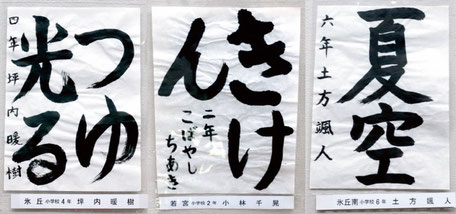 つゆ
光る
四年坪内暖樹
氷丘小学校4年 坪内暖樹
きけ
ん
二年
こばやし
ちあき
若宮小学校2年 小林千晃
夏空
六年土方颯人
氷丘南小学校6年 土方颯人